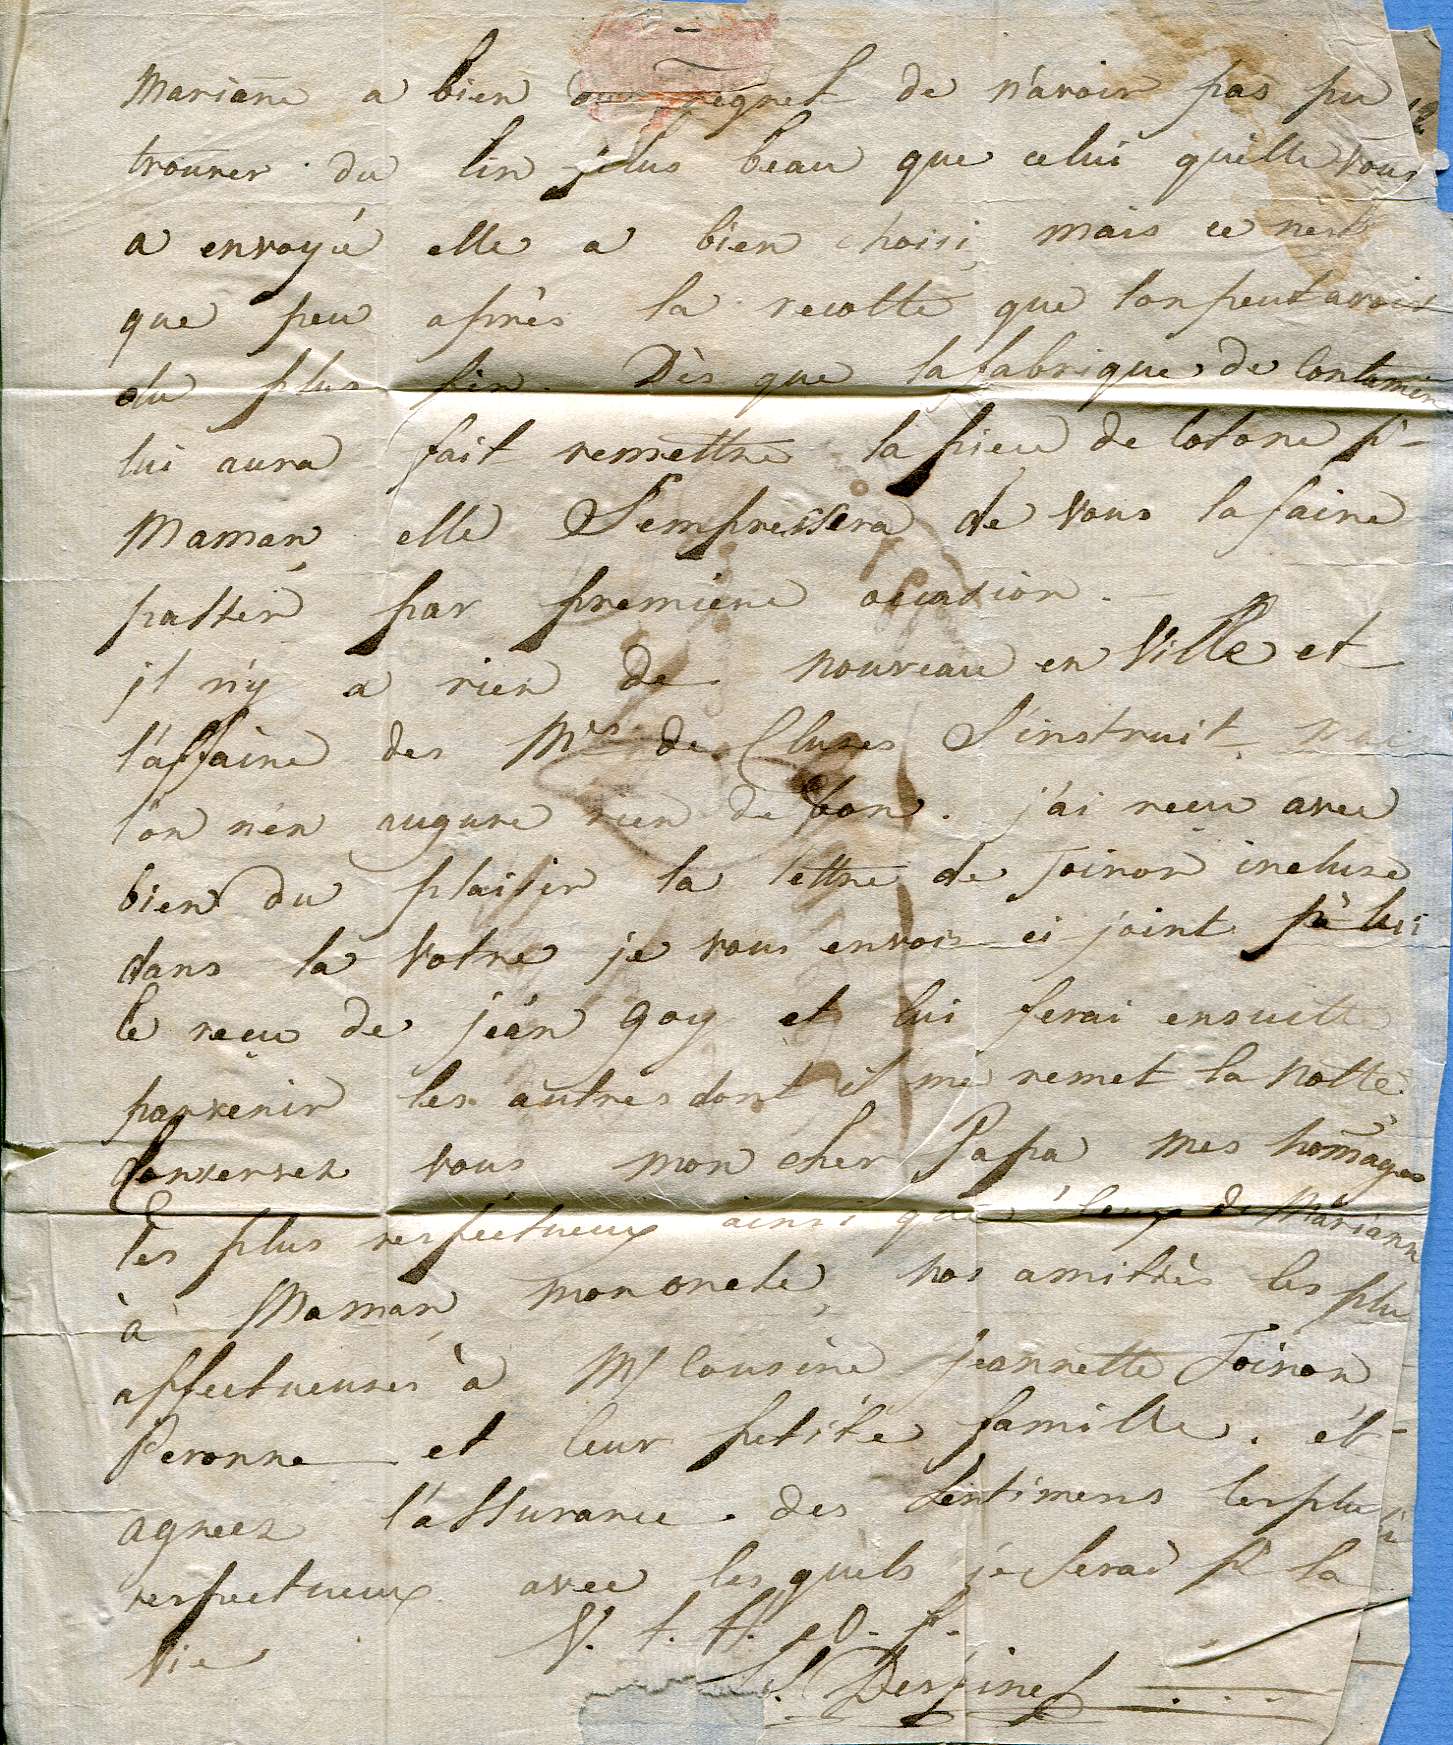 Mariane a bien du regret de n'avoir pas pu
trouver du lin plus beau que celui quelle vous
a envoyé elle a bien choisi, mais ce nest
que peu après la recolte que lon peut avoir
du plus fin. Dès que la fabrique de Contamin
lui aura fait remettre la piece de cotone pr
Maman, elle S'empressera de vous la faire
passer par premiere occasion.
il n'y a rien de nouveau en Ville et
l'affaire des Mrs de Cluses S'instruit, mais
l'on n'en augure rien de bon. j'ai reçu avec
bien du plaisir la lettre de Toinon incluse
dans la votre je vous envois ci joint pr lui
le reçu de jean Goy et lui ferai ensuitte
parvenir les autres dont il me remet la notte.
Conservez vous mon cher Papa mes homages
les plus respectueux ainsi que ceux de Mariann
à Maman, mon oncle, nos amitiés les plu
affectueuses à M Cousine Jeannette Toinon
Peronne et leur petite famille. et
agreez l'assurance des Sentimens les plu
respectueux avec les quels je serai pr la
vie V. t. h. e. O. f.
Despine